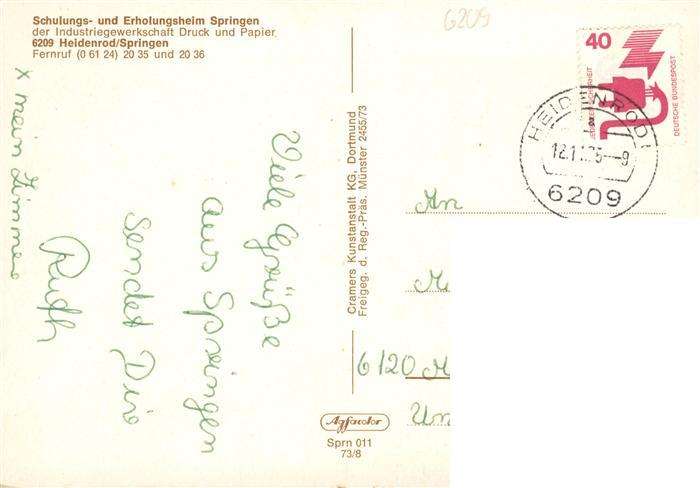 Schulungs- und Erholungsheim Springen
der Industriegewerkschaft Druck und Papier
6209 Heidenrod/Springen
Fernruf (0 61 24) 20 35 und 20 36
6209
40
JEDERZEIT SICHERHEIT
DEUTSCHE BUNDESPOST
HEIDENROD 1
6209
x mein Zimmer
Viele Grüße
aus Springen
sendet Dir
Ruth
Cramers Kunstanstalt KG, Dortmund
Freigeg. d. Reg.-Präs. Münster 2455/73
An
6120 M
Agfacolor
Sprn 011
73/8